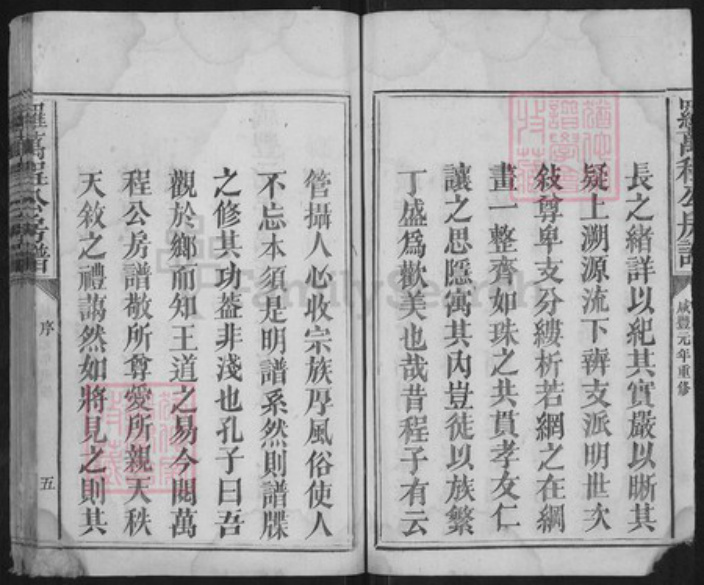 羅萬程公房譜
咸豐元年重修
長之緒詳以紀其實嚴以晰其
疑上溯源流下辨支派明世次
敍尊卑支分縷析若網之在綱
畫一整齊如珠之共貫孝友仁
讓之思隱寓其內豈徒以族繁
丁盛爲歡美也哉昔程子有云
管攝人心收宗族厚風俗使人
不忘本須是明譜系然則譜牒
之修其功蓋非淺也孔子曰吾
觀於鄉而知王道之易今閱萬
程公房譜敬所尊愛所親天秩
天敘之禮藹然如將見之則其
羅萬程公房譜
序
五
FamilySearch